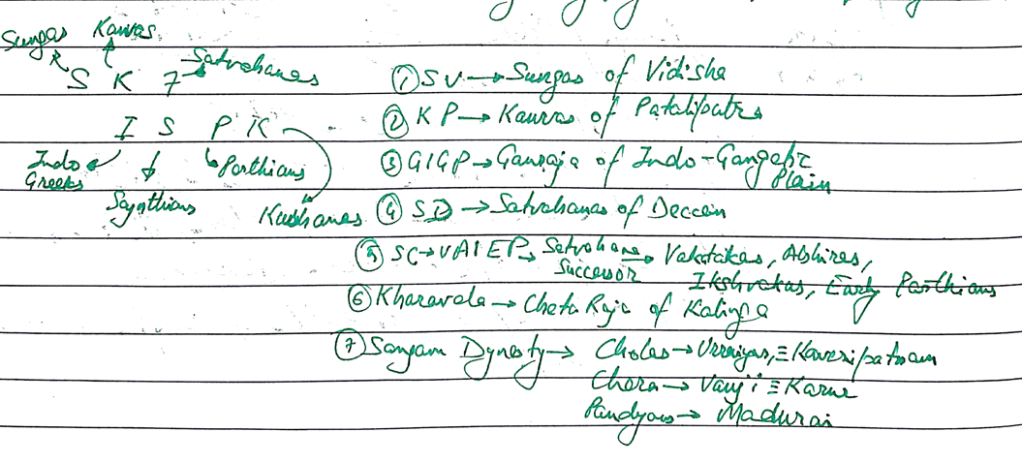 Sungas Kanvas
S K 7 → Satvahanas
I S P K
Indo Greeks
Parthians
Scythians
Kushanas
① SV → Sungas of Vidisha
② KP → Kanvas of Pataliputra
③ GIGP → Ganraja of Indo-Gangetic Plain
④ SD → Satvahanas of Deccan
⑤ SC → VAIEP → Satvahana Successor → Vakatakas, Abhiras,
Ikshvakas, Early Parthians
⑥ Kharavela → Cheta Raja of Kalinga
⑦ Sangam Dynasty → Cholas → Urraiyas, ≡ Kaveripatnam
Chera → Vanji ≡ Karur
Pandyas → Madurai